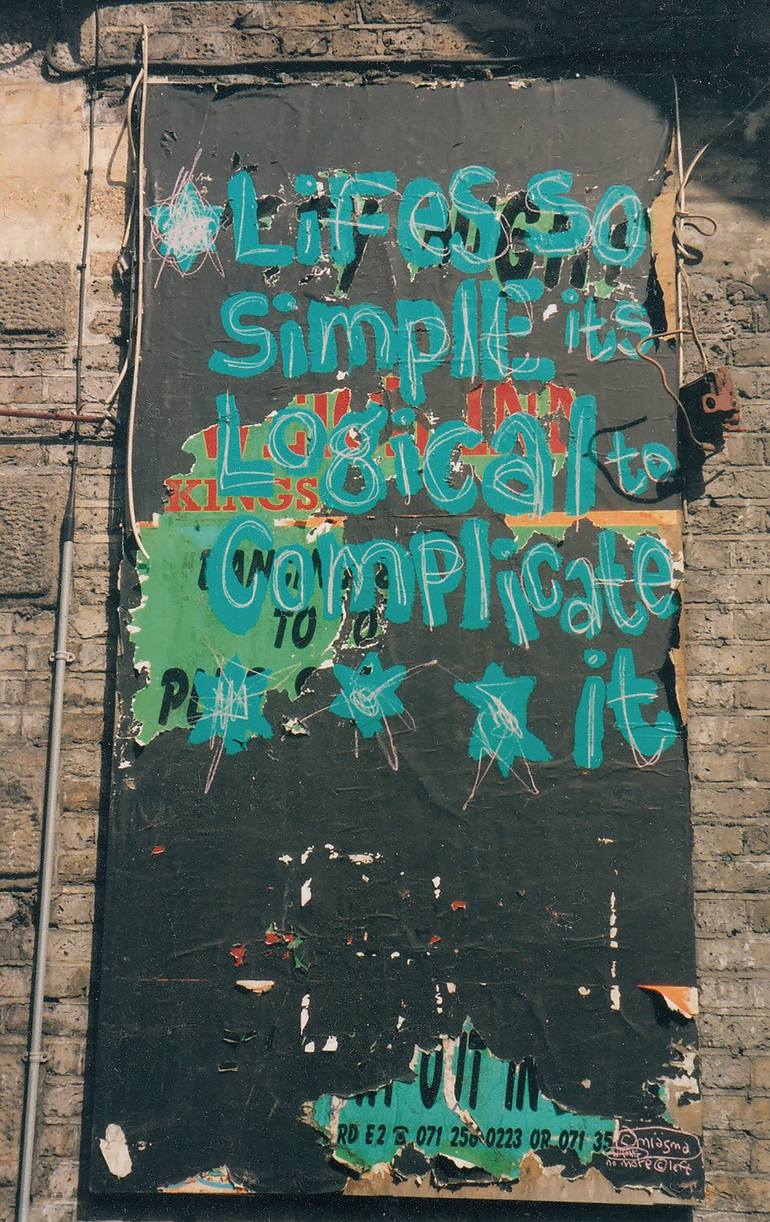 LiFES SO
SimplE its
Logical to
KINGS
Complicate
TO
it
OUT IN
RD E2 ☎ 071 256-0223 OR 071 35
© miasma
no more © left